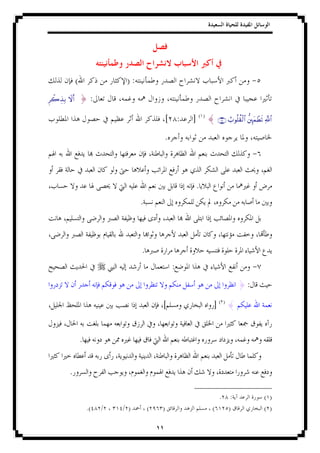 الوسائل المفيدة للحياة السعيدة
فصل
في أكبر الأسباب لانشراح الصدر وطمأنينته
٥- ومن أكبر الأسباب لانشراح الصدر وطمأنينته: (الإكثار من ذكر الله) فإن لذلك
تأثيرا عجيبا في انشراح الصدر وطمأنينته، وزوال همه وغمه، قال تعالى: ﴿ أَلَا بِذِكْرِ
اللَّهِ تَطْمَئِنُّ الْقُلُوبُ ﴾ (١) [الرعد:٢٨]، فلذكر الله أثر عظيم في حصول هذا المطلوب
لخاصيته، ولما يرجوه العبد من ثوابه وأجره.
٦- وكذلك التحدث بنعم الله الظاهرة والباطنة، فإن معرفتها والتحدث بها يدفع الله به الهم
والغم، ويحث العبد على الشكر الذي هو أرفع المراتب وأعلاها حتى ولو كان العبد في حالة فقر أو
مرض أو غيرهما من أنواع البلايا. فإنه إذا قابل بين نعم الله عليه التي لا يحصى لها عد ولا حساب،
وبين ما أصابه من مكروه، لم يكن للمكروه إلى النعم نسبة.
بل المكروه والمصائب إذا ابتلى الله بها العبد، وأدى فيها وظيفة الصبر والرضى والتسليم، هانت
وطأتها، وخفت مؤنتها، وكان تأمل العبد لأجرها وثوابها والتعبد لله بالقيام بوظيفة الصبر والرضى،
يدع الأشياء المرة حلوة فتنسيه حلاوة أجرها مرارة صبرها.
٧- ومن أنفع الأشياء في هذا الموضع: استعمال ما أرشد إليه النبي ﷺ في الحديث الصحيح
حيث قال: ﴿ انظروا إلى من هو أسفل منكم ولا تنظروا إلى من هو فوقكم فإنه أجدر أن لا تزدروا
نعمة الله عليكم ﴾ (٢) [رواه البخاري ومسلم]، فإن العبد إذا نصب بين عينيه هذا الملحظ الجليل،
رآه يفوق جمعا كثيرا من الخلق في العافية وتوابعها، وفي الرزق وتوابعه مهما بلغت به الحال، فيزول
قلقه وهمه وغمه، ويزداد سروره واغتباطه بنعم الله التي فاق فيها غيره ممن هو دونه فيها.
وكلما طال تأمل العبد بنعم الله الظاهرة والباطنة، الدينية والدنيوية، رأى ربه قد أعطاه خيرا كثيرا
ودفع عنه شرورا متعددة، ولا شك أن هذا يدفع الهموم والغموم، ويوجب الفرح والسرور.
(١) سورة الرعد آية: ٢٨.
(٢) البخاري الرقاق (٦١٢٥) ، مسلم الزهد والرقائق (٢٩٦٣) ، أحمد (٣١٤/٢ ، ٤٨٢/٢).
١١